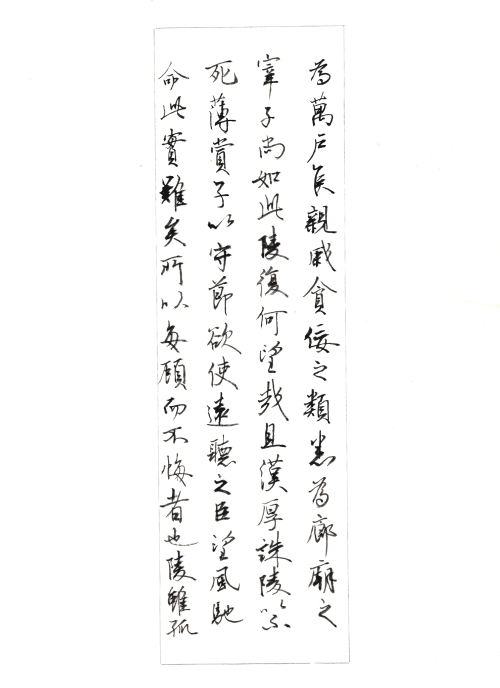 為萬戶侯親戚貪佞之類悉為廊廟之
宰子尚如此陵復何望哉且漢厚誅陵以不
死薄賞子以守節欲使遠聽之臣望風馳
命此實難矣所以每顧而不悔者也陵雖孤